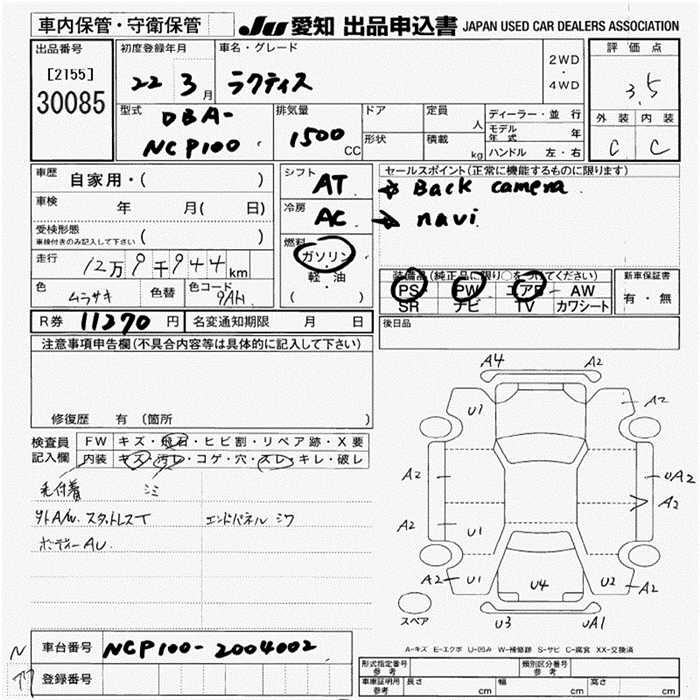 車内保管・守衛保管
JU 愛知 出品申込書 JAPAN USED CAR DEALERS ASSOCIATION
出品番号
[2155]
30085
初度登録年月
22 3月
車名・グレード
ラクティス
2WD
・
4WD
評価点
3.5
外装 内装
C C
型式
DBA-
NCP100
排気量
1500 CC
ドア
形状
定員 人
積載 kg
ディーラー・並行
モデル年式 年
ハンドル 左・右
車歴 自家用・( )
車検 年 月( 日)
受検形態
車検付きのみ記入して下さい ( )
走行 12万9千944km
色 ムラサキ 色替 色コード 9AH
シフト AT
冷房 AC
燃料 ガソリン
・
軽・油
( )
セールスポイント(正常に機能するものに限ります)
→ Back camera
→ navi
装備品(純正品に限り○をつけてください)
PS PW エアB AW
SR ナビ TV カワシート
新車保証書
有・無
R券 11270円 名変通知期限 月 日
後日品
注意事項申告欄(不具合内容等は具体的に記入して下さい)
修復歴 有 (箇所 )
検査員
記入欄
FW キズ・飛石・ヒビ割・リペア跡・X要
内装 キズ・汚レ・コゲ・穴・スレ・キレ・破レ
毛付着 シミ
外AW. スタットレスT エンドパネル シワ
ボディーAU.
A4 A2
U1 A2
A2 UA2
A2 U1 A2
A2 U1 U4 U2 A2
U3 UA1
スペア
A-キズ E-エクボ U-凹み W-補修跡 S-サビ C-腐食 XX-交換済
車台番号 NCP100-2004002
登録番号
形式指定番号
参考
類別区分番号
参考
車庫証明用
参考
長さ cm 幅 cm 高さ cm